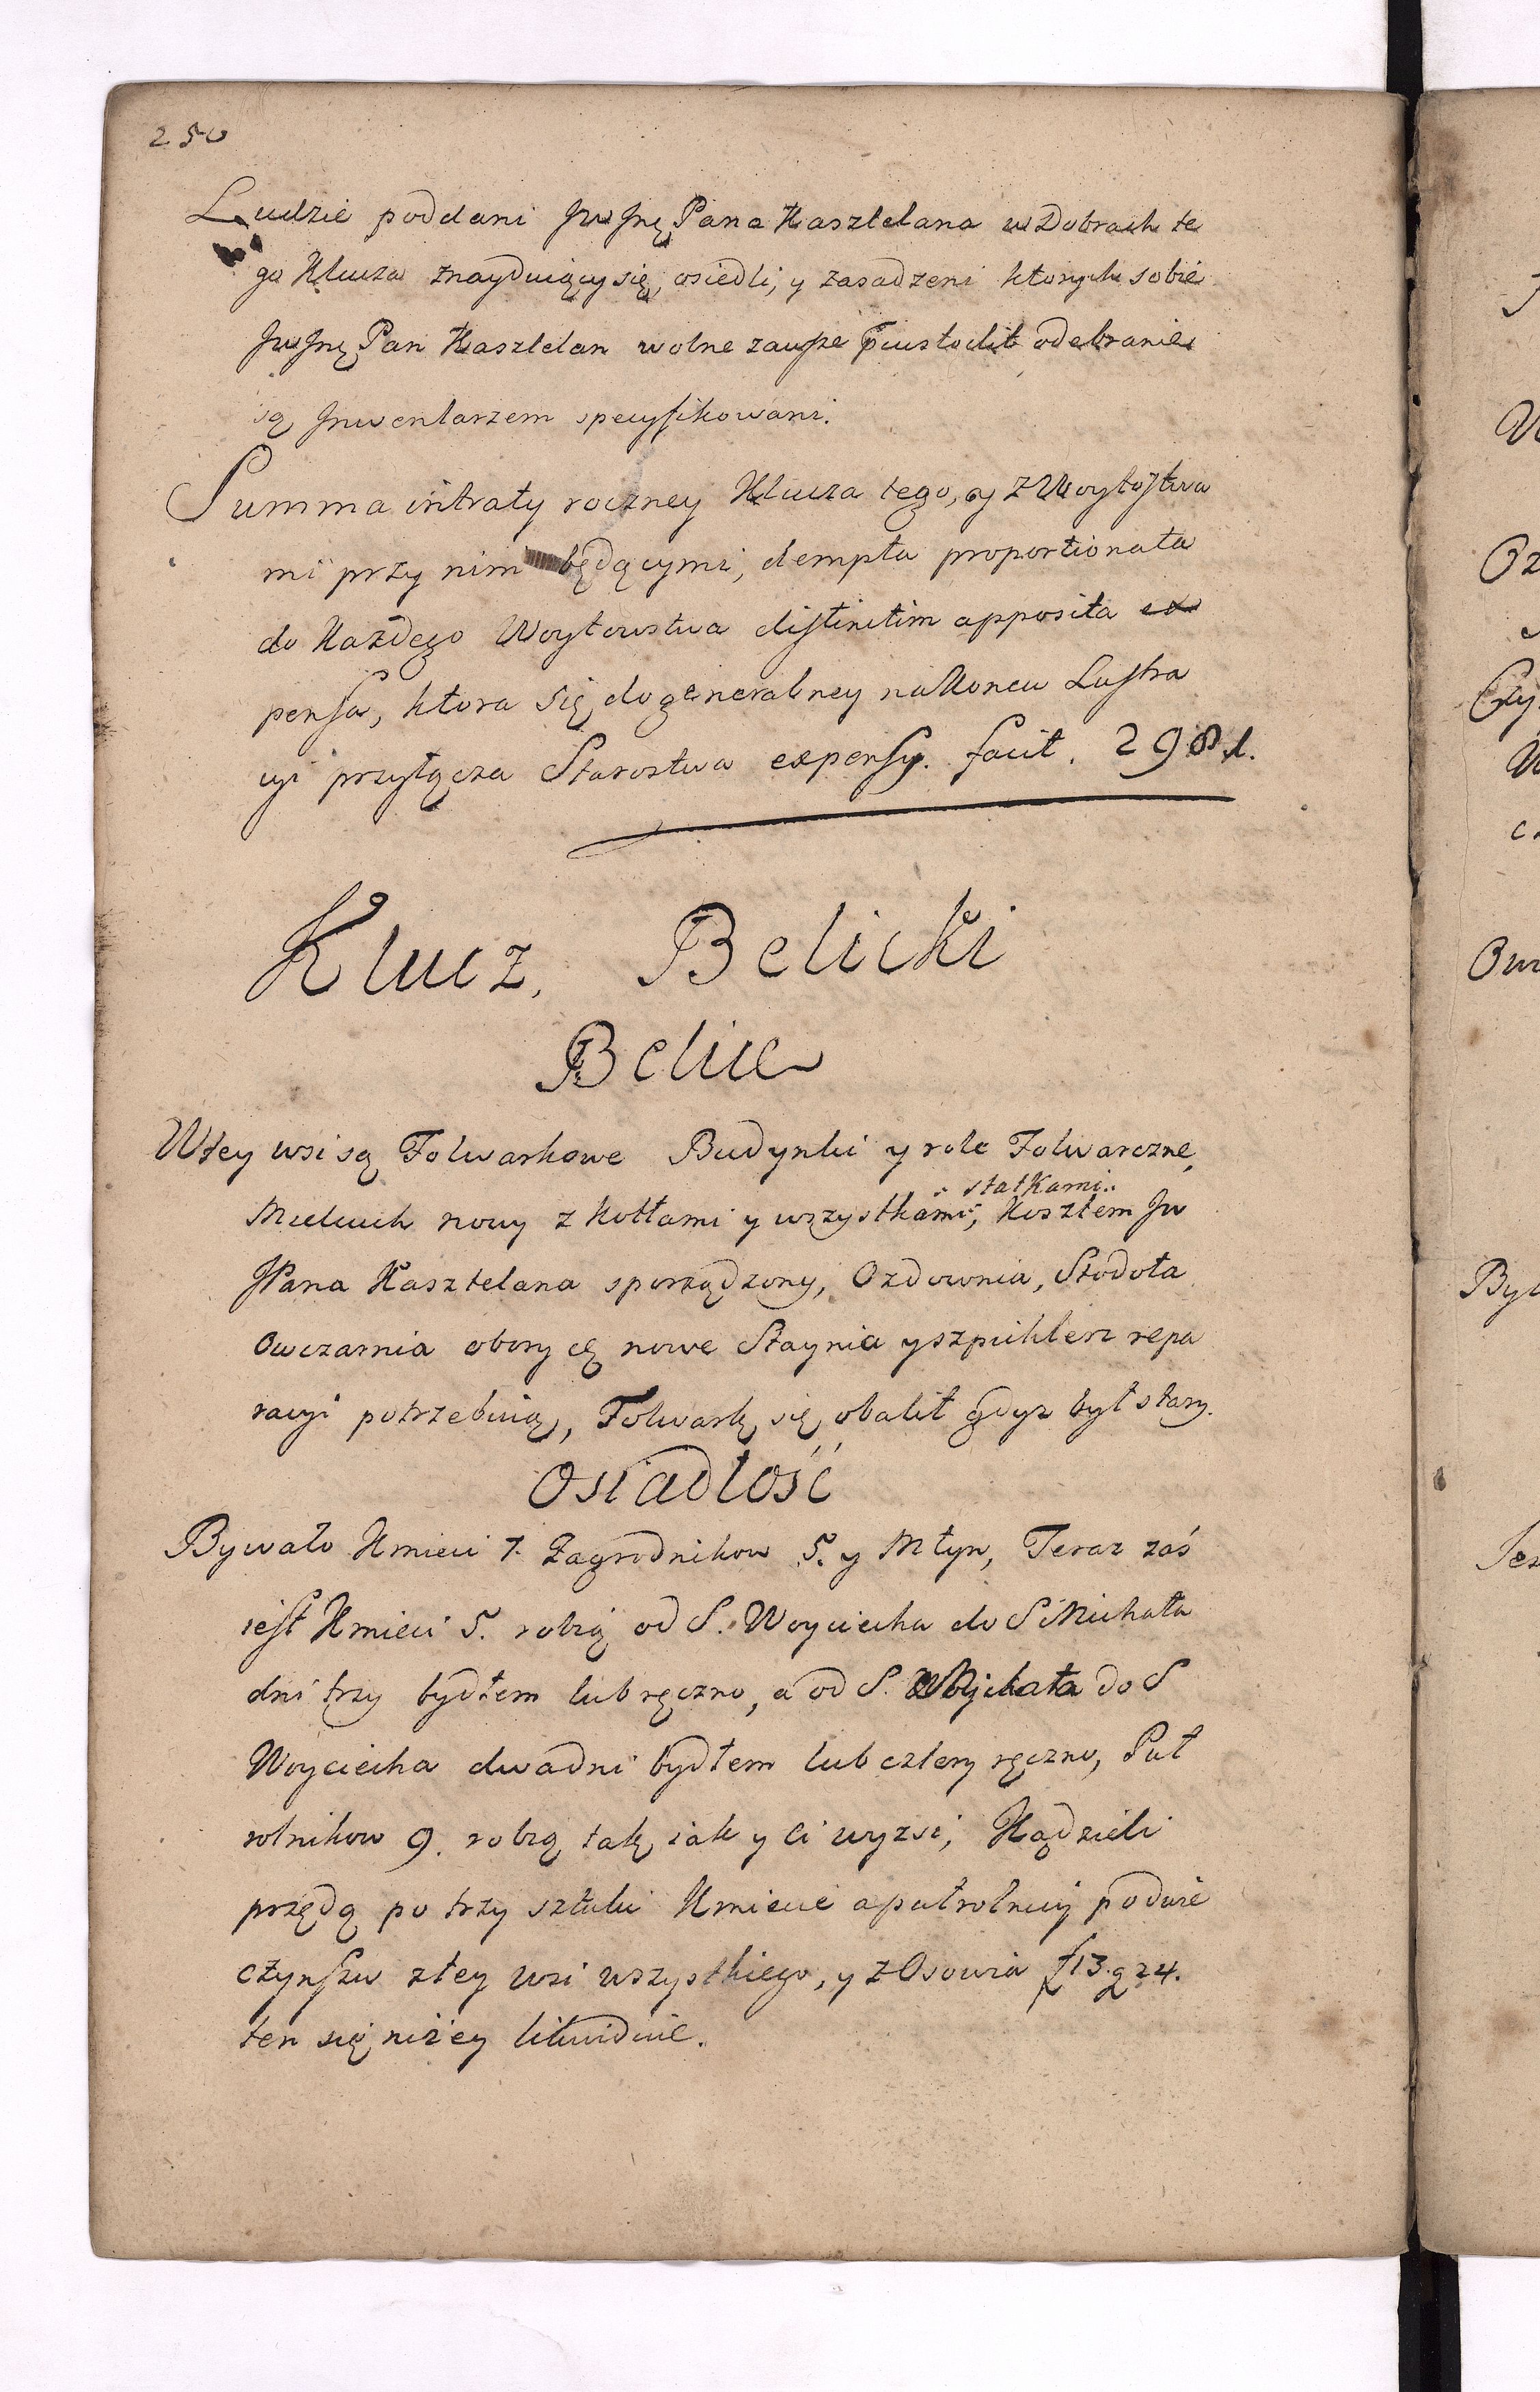 250
Ludzie poddani Jw Jnę Pana Kasztelana w Dobrach te
go Klucza znayduiący się, osiedli, y zasadzeni ktorych sobie
Jw Jnę Pan Kasztelan wolne zawsze custodit odebranie
są Jnwentarzem specyfikowani.
Summa intraty roczney Klucza tego, y z Woytostwa
mi przy nim będącymi, dempta proportionata
do Każdego Woytowstwa distinctim apposita ex
pensa, ktora się do generalney na Koncu Lustra
cyi przyłącza Starostwa expensy. facit.
Klucz, Belicki
Belice
W tey wsi są Folwarkowe Budynki y role Folwarczne,
statkami
Mielcuch nowy z Kotłami y wszystkami, Kosztem Jw
JPana Kasztelana sporządzony, Ozdownia, Stodoła
Owczarnia obory są nowe Staynia y szpiklerz repa
racyi potrzebuią, Folwark się obalił gdyz był stary.
Osiadłość
Bywało Kmieci 7. Zagrodnikow 5. y Młyn, Teraz zaś
iest Kmieci 5. robią od S. Woyciecha do S Michała
dni trzy bydłem lub ręczno, a od S. Michała do S
Woyciecha dwa dni bydłem lub cztery ręczno, Puł
rolnikow 9. robią tak iak y ci wyzsi, Kądzieli
przędą po trzy sztuki Kmiecie a pułrolnicy po dwie
czynszu z tey wsi wszystkiego, y z Osowia f 13. g 24.
ten się niżey likwiduie.